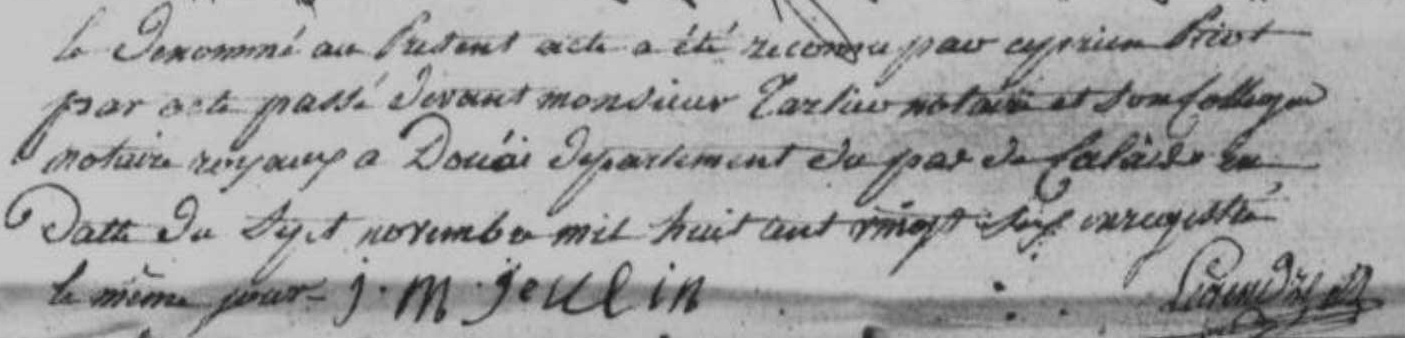 le Denommé au Present acte a été reconnu par cyprien Priot
par acte passé devant monsieur Tarlieu notaire et son Collegue
notaire royaux a Douai departement du pas de Calais en
Datte du Sept novembre mil huit cent vingt Six enregistré
le même jour j. m. jeulin